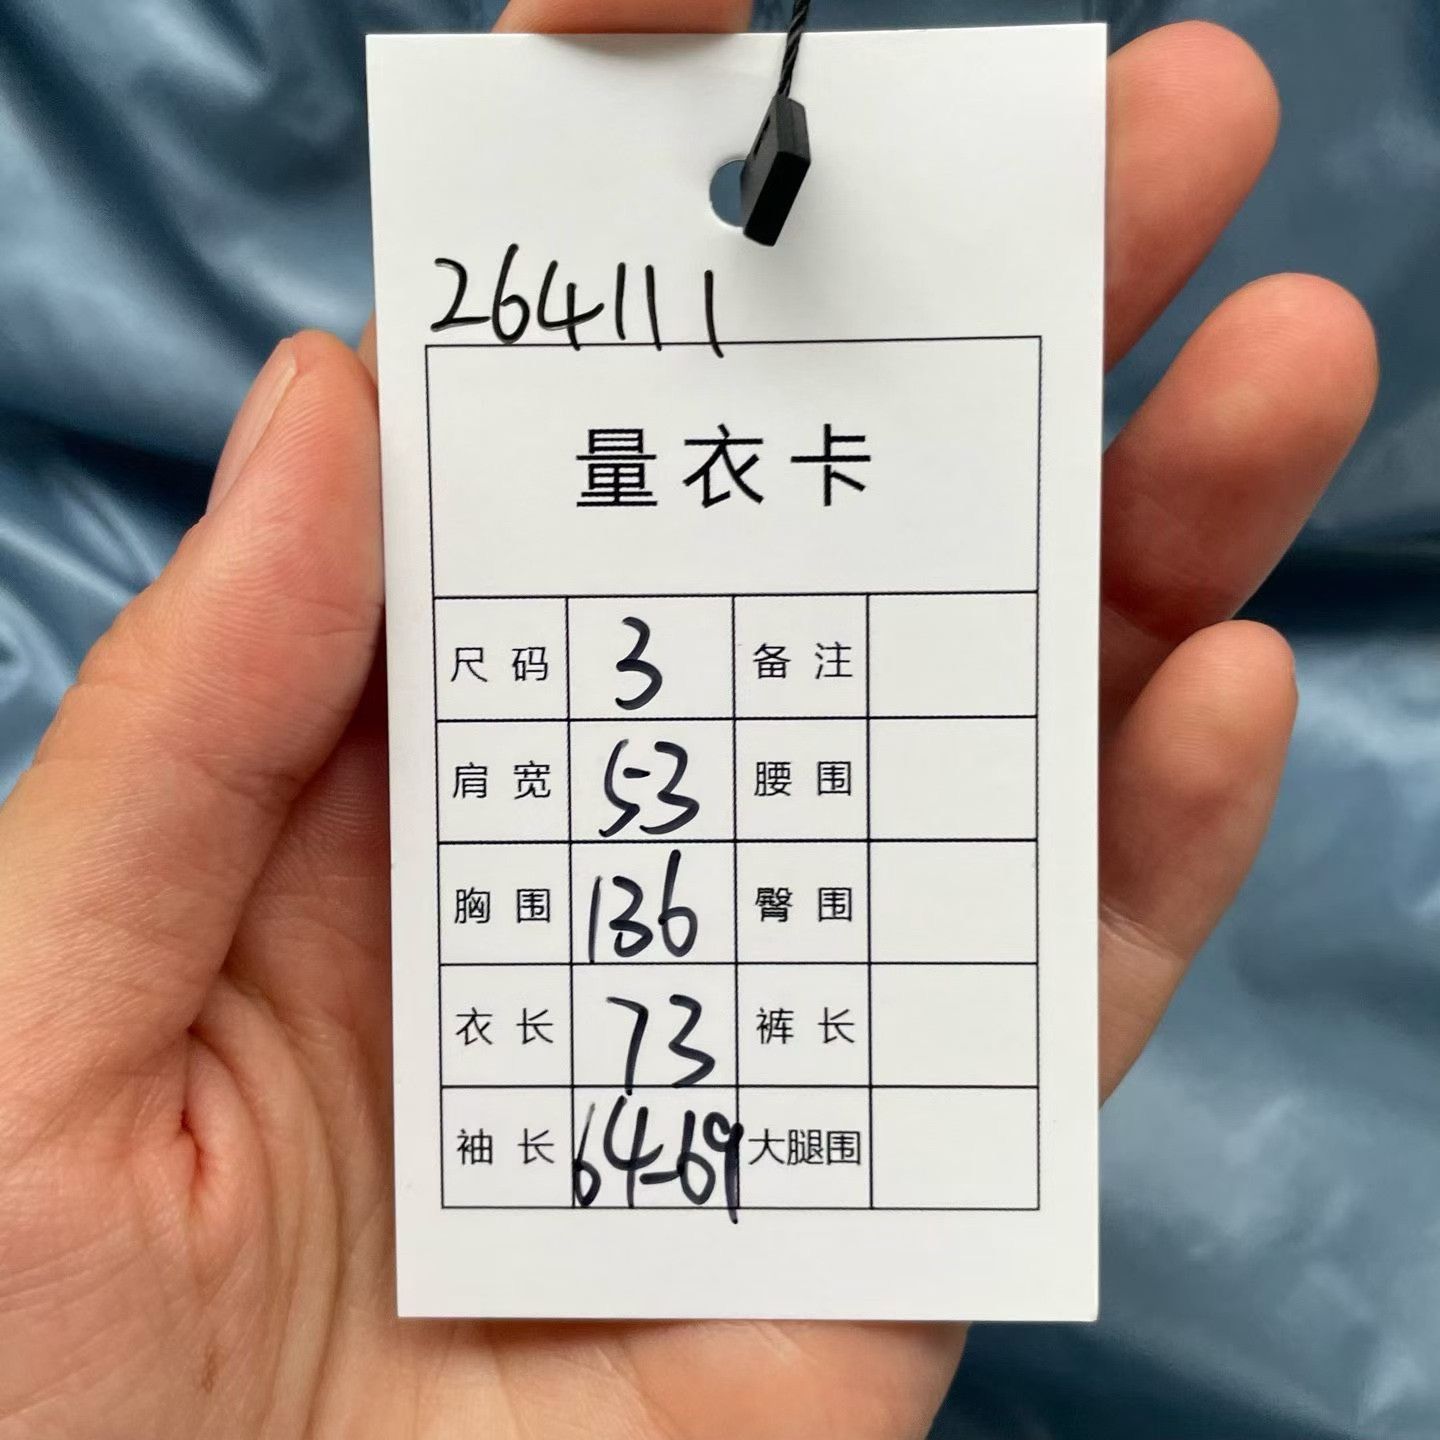 264111
量衣卡
尺码 3 备注
肩宽 53 腰围
胸围 136 臀围
衣长 73 裤长
袖长 64-69 大腿围